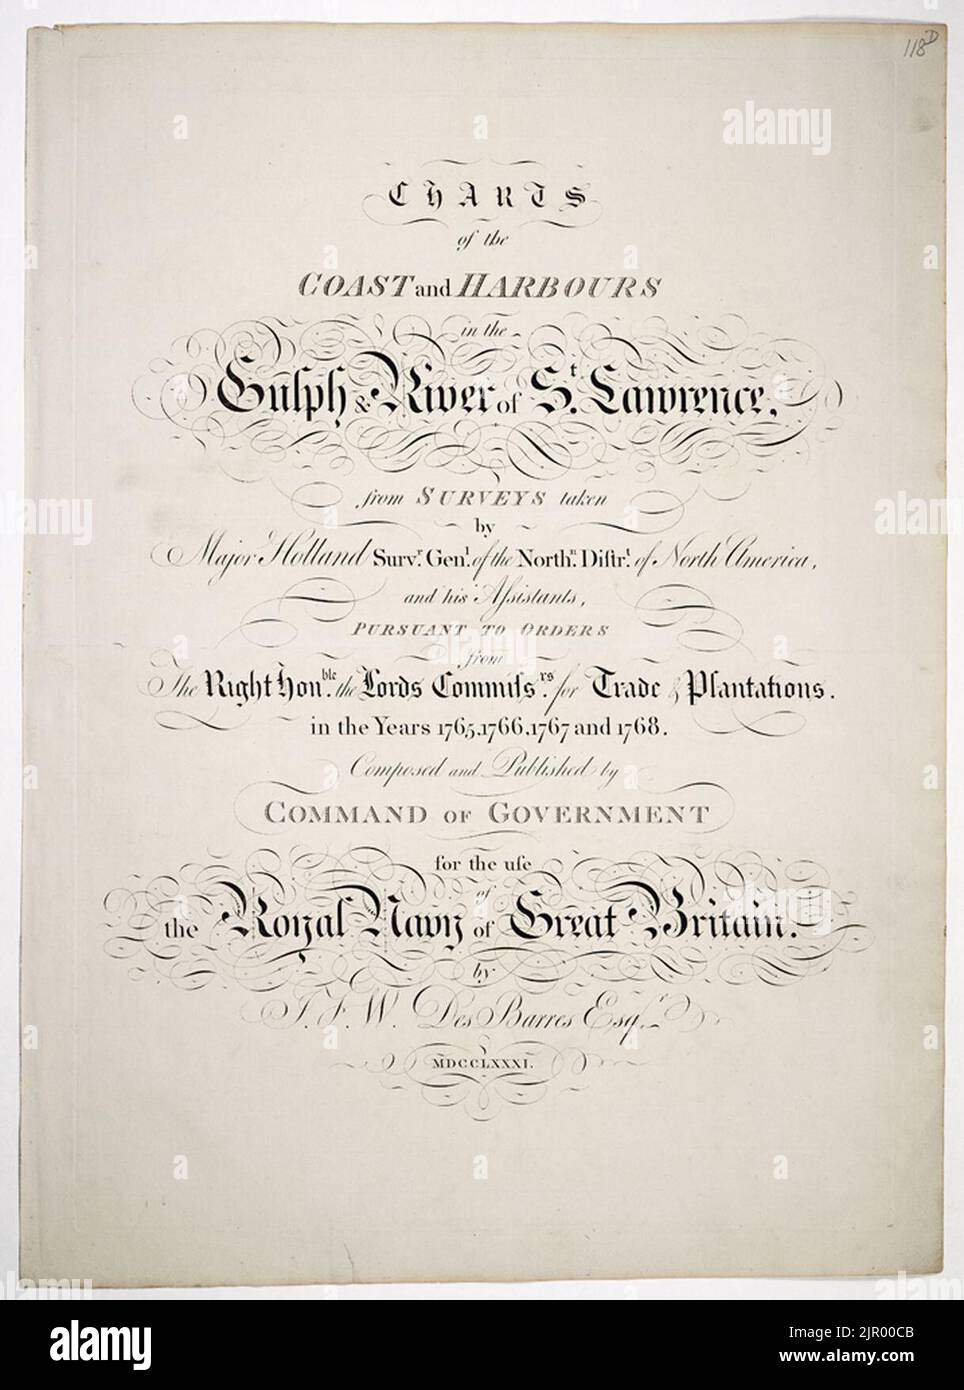 118D
CHARTS
of the
COAST and HARBOURS
in the
Gulph & River of St. Lawrence,
from SURVEYS taken
by
Major Holland Survr. Genl. of the Northn. Diſtrt. of North America,
and his Aſsistants,
PURSUANT TO ORDERS
from
The Right Honble. the Lords Commiſsrs. for Trade & Plantations.
in the Years 1765, 1766, 1767 and 1768.
Composed and Published by
COMMAND OF GOVERNMENT
for the uſe
of
the Royal Navy of Great Britain.
by
J. F. W. Des Barres Esqr.
MDCCLXXXI.
a alamy
alamy
Image ID: 2JR00CB
www.alamy.com